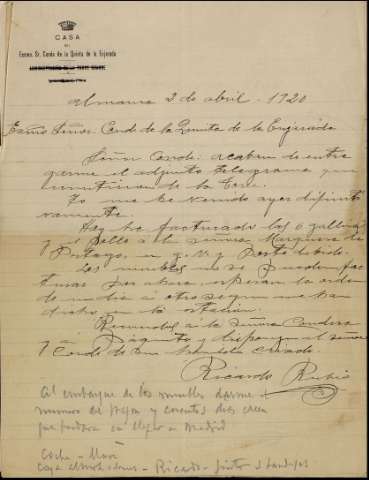 CASA
DEL
Excmo. Sr. Conde de la Quinta de la Enjarada
Almansa 2 de abril - 1920
Excmo Señor Conde de la Quinta de la Enjarada
Señor Conde: acaban de entre
garme el adjunto telegrama que
de la Torre.
Yo me he venido ayer
Hoy he facturado las 6 gallinas
y el pollo a la señora Marquesa de
Portago, en g. v. y porte debido.
Los muebles no se pueden fac
turar por ahora, esperan la orden
de un dia a otro segun me han
dicho en la estacion.
Recuerdos a la Señora Condesa
a Paquito y el señor
Conde de su criado.
Ricardo Rubio
Al embarque de los muebles darme
numero de y cuantos dias creen
que en llegar a Madrid
Coche -
Caja - Ricardo -